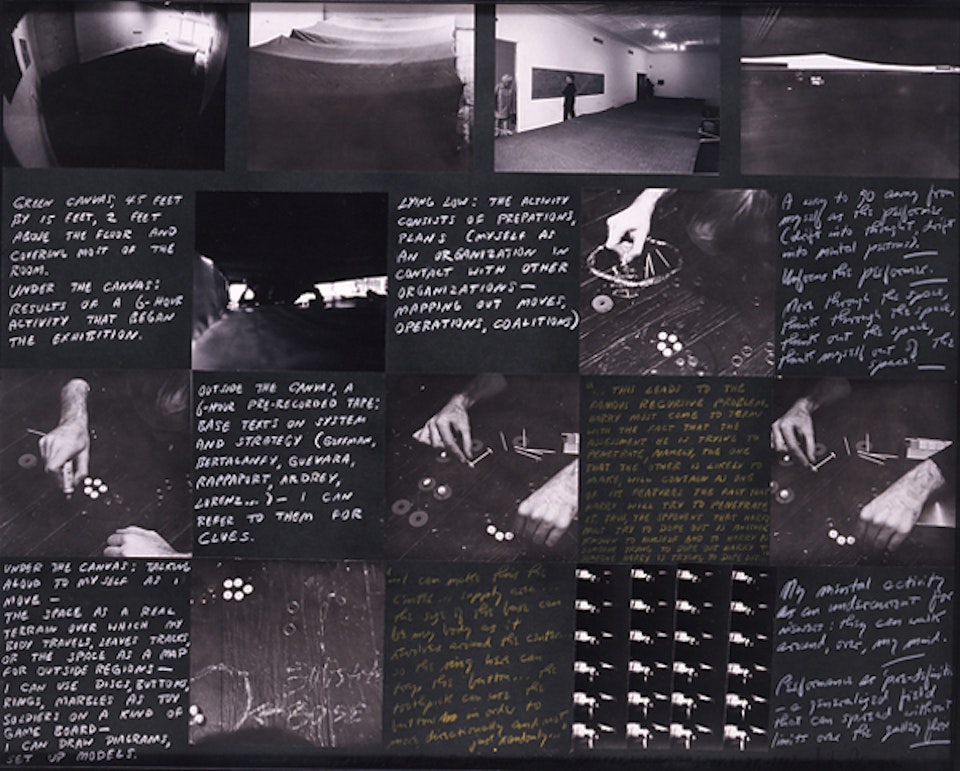 GREEN CANVAS, 45 FEET
BY 15 FEET, 2 FEET
ABOVE THE FLOOR AND
COVERING MOST OF THE
ROOM.
UNDER THE CANVAS:
RESULTS OF A 6-HOUR
ACTIVITY THAT BEGAN
THE EXHIBITION.
LYING LOW: THE ACTIVITY
CONSISTS OF PREPATIONS,
PLANS (MYSELF AS
AN ORGANIZATION IN
CONTACT WITH OTHER
ORGANIZATIONS—
MAPPING OUT MOVES,
OPERATIONS, COALITIONS)
A way to go away from
myself as the performer
(drift into thought, drift
into mental pictures).
the performer.
Move through the space,
think through the space,
think out the space,
think myself out of the
space.
OUTSIDE THE CANVAS, A
6-HOUR PRE-RECORDED TAPE:
BASE TEXTS ON SYSTEM
AND STRATEGY (GOFFMAN,
BERTALANFFY, GUEVARA,
RAPPAPORT, ARDREY,
LORENZ...) — I CAN
REFER TO THEM FOR
CLUES.
"... THIS LEADS TO THE
FAMOUS RECURSIVE PROBLEM.
HARRY MUST COME TO TERMS
WITH THE FACT THAT THE
ASSESSMENT HE IS TRYING TO
PENETRATE, NAMELY, THE ONE
THAT THE OTHER IS LIKELY TO
MAKE, WILL CONTAIN AS ONE
OF ITS FEATURES THE FACT THAT
HARRY WILL TRY TO PENETRATE
IT. THUS, THE OPPONENT THAT HARRY
MUST TRY TO DOPE OUT IS ANOTHER
KNOWN TO HIMSELF AND TO HARRY AS
SOMEONE TRYING TO DOPE OUT HARRY
UNDER THE CANVAS: TALKING
ALOUD TO MYSELF AS I
MOVE —
THE SPACE AS A REAL
TERRAIN OVER WHICH MY
BODY TRAVELS, LEAVES TRACKS,
OR THE SPACE AS A MAP
FOR OUTSIDE REGIONS—
I CAN USE DISCS, BUTTONS,
RINGS, MARBLES AS TOY
SOLDIERS ON A KIND OF
GAME BOARD—
I CAN DRAW DIAGRAMS,
SET UP MODELS.
BASE
I can make this the
center... supply area...
the size of the base can
be my body as it
revolves around the center.
so the ring here can
the button... the
toothpick can use the
button in order to
move directionally and not
just randomly...
My mental activity
as an undercurrent for
: they can walk
around, over, my mind.
Performance as pre-definition
— a generalized field
that can spread without
limits over the gallery floor